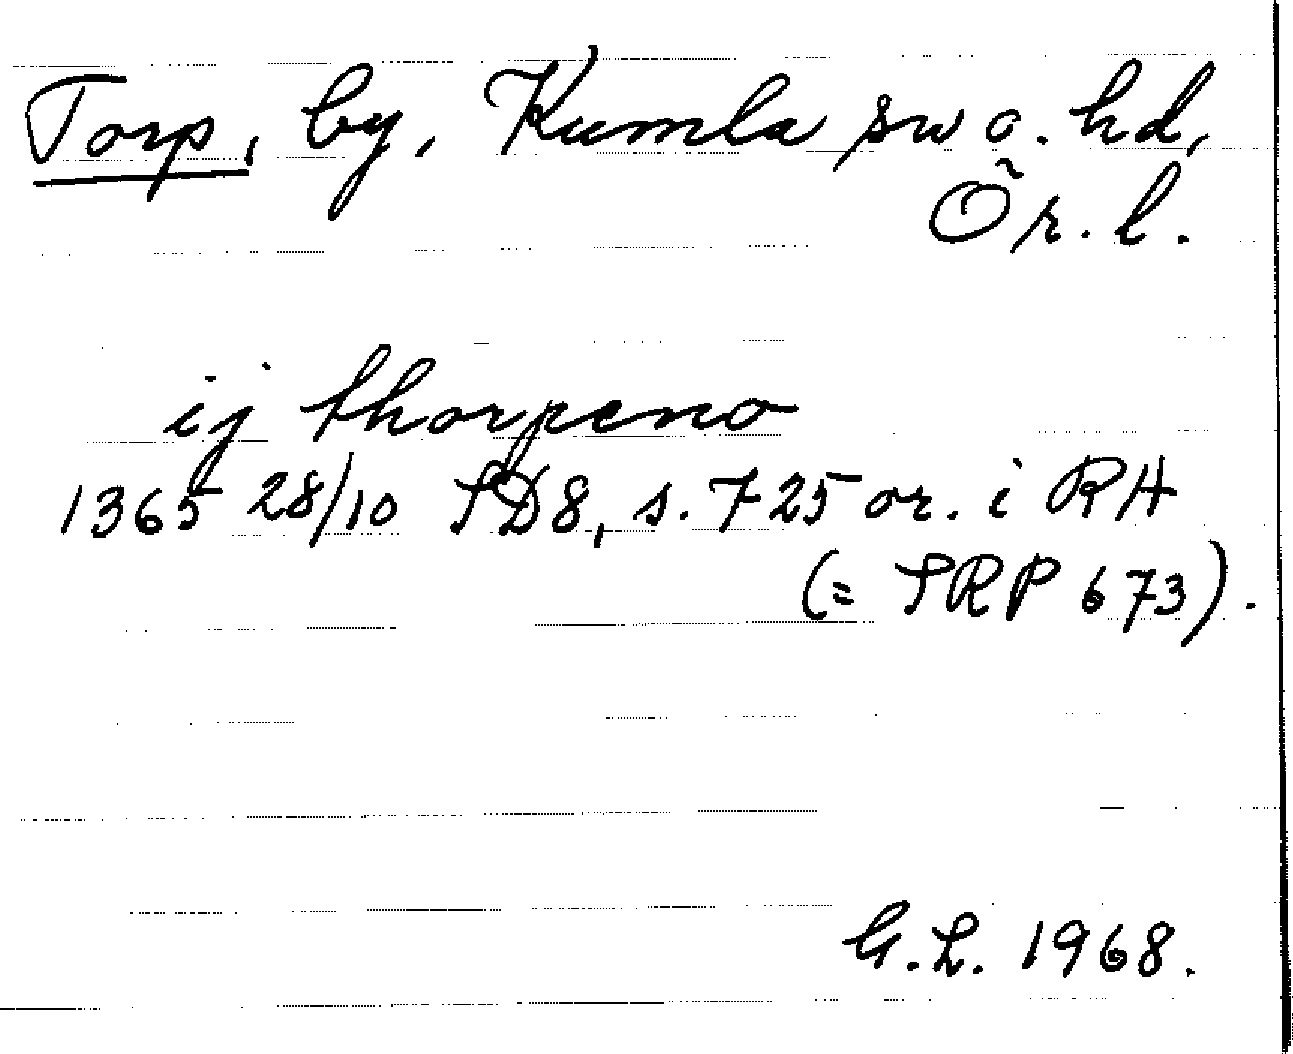 Torp, by, Kumla sn o. hd,
Ör. l.
ij thorpeno
1365 28/10 SD8, s. 725 or. i RH
(= SRP 673).
G.L. 1968.